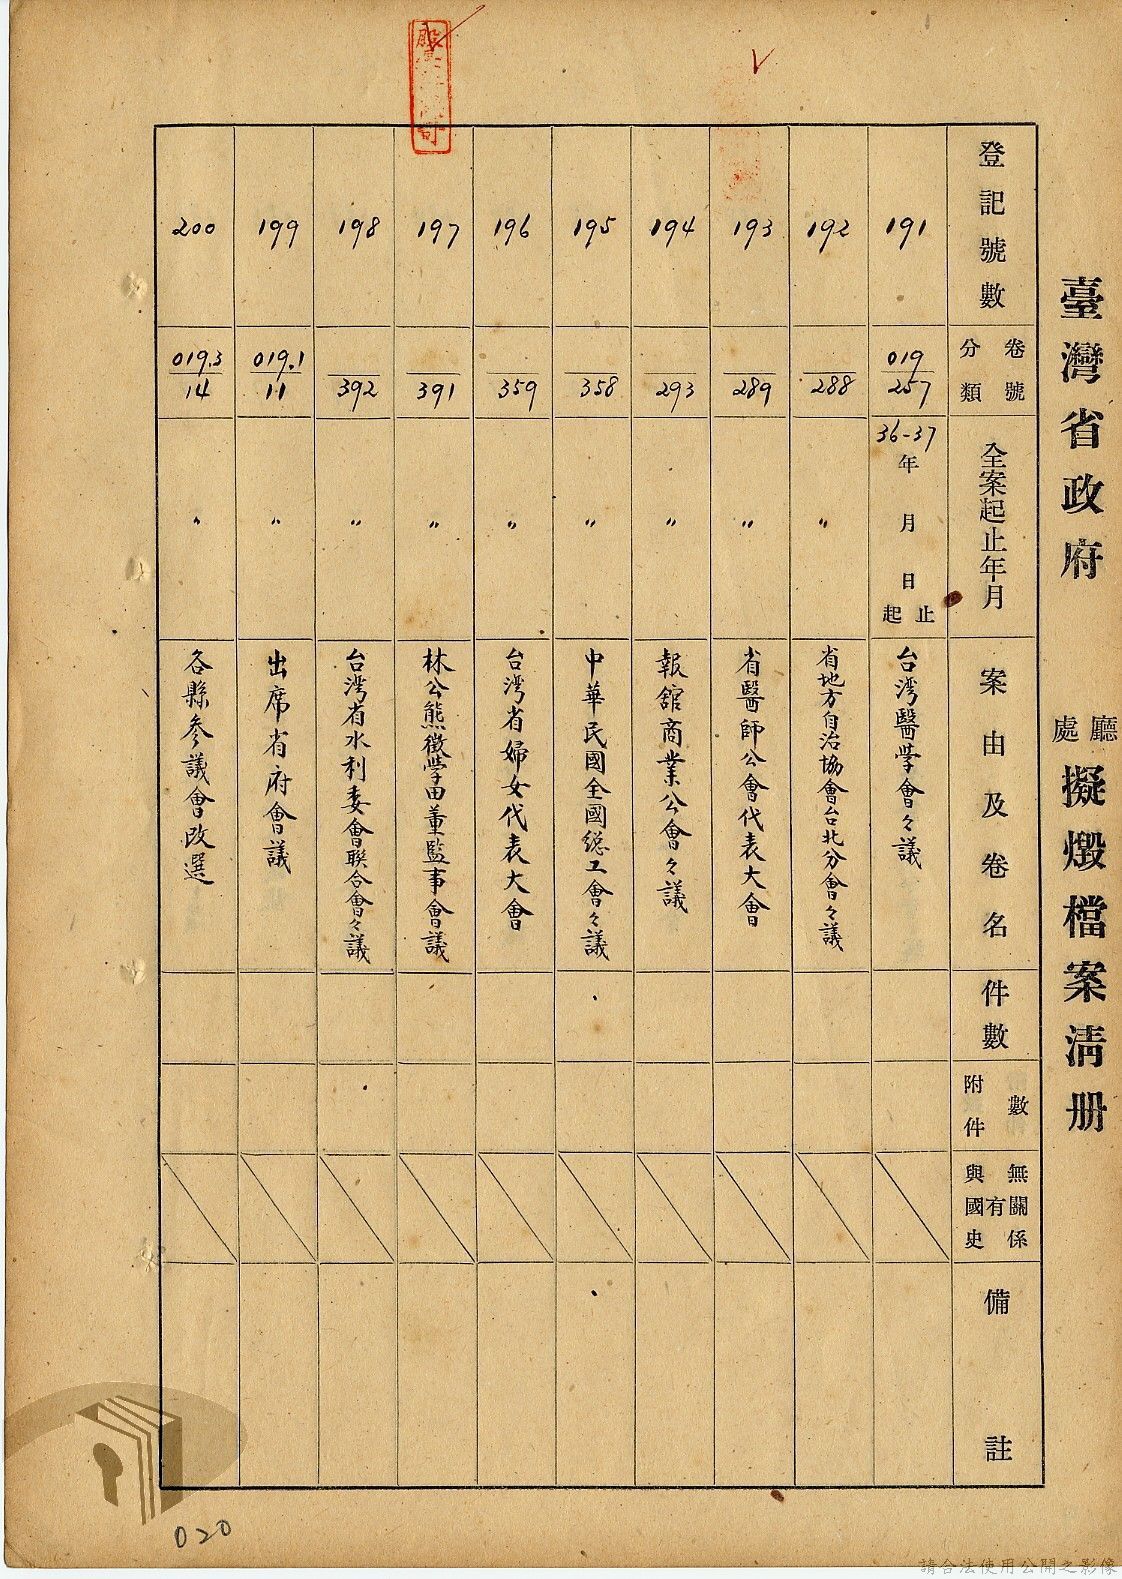 臺灣省政府 廳處 擬燬檔案清册
登記號數 卷號分類 全案起止年月 案由及卷名 件數 附件數 與國史有無關係 備註
191 019/257 36-37年 月 日起止 台湾醫学會々議
192 288 〃 省地方自治協會台北分會々議
193 289 〃 省醫師公會代表大會
194 293 〃 報舘商業公會々議
195 358 〃 中華民國全國總工會々議
196 359 〃 台湾省婦女代表大會
197 391 〃 林公熊徵学田董監事會議
198 392 〃 台湾省水利委會聯合會々議
199 019.1/11 〃 出席省府會議
200 019.3/14 〃 各縣参議會改選
020
請合法使用公開之影像